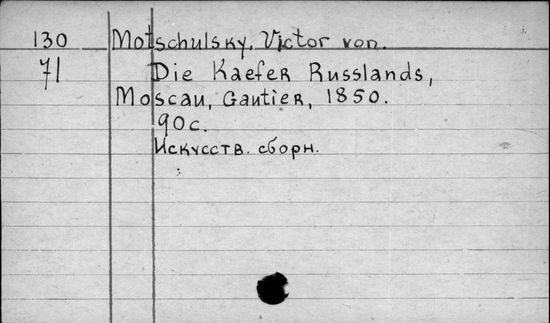 130 Motschulsky, Victor von.
71 Die Kaefer Russlands,
Moscau, Gautier, 1850.
90 с.
Искусств. сборн.